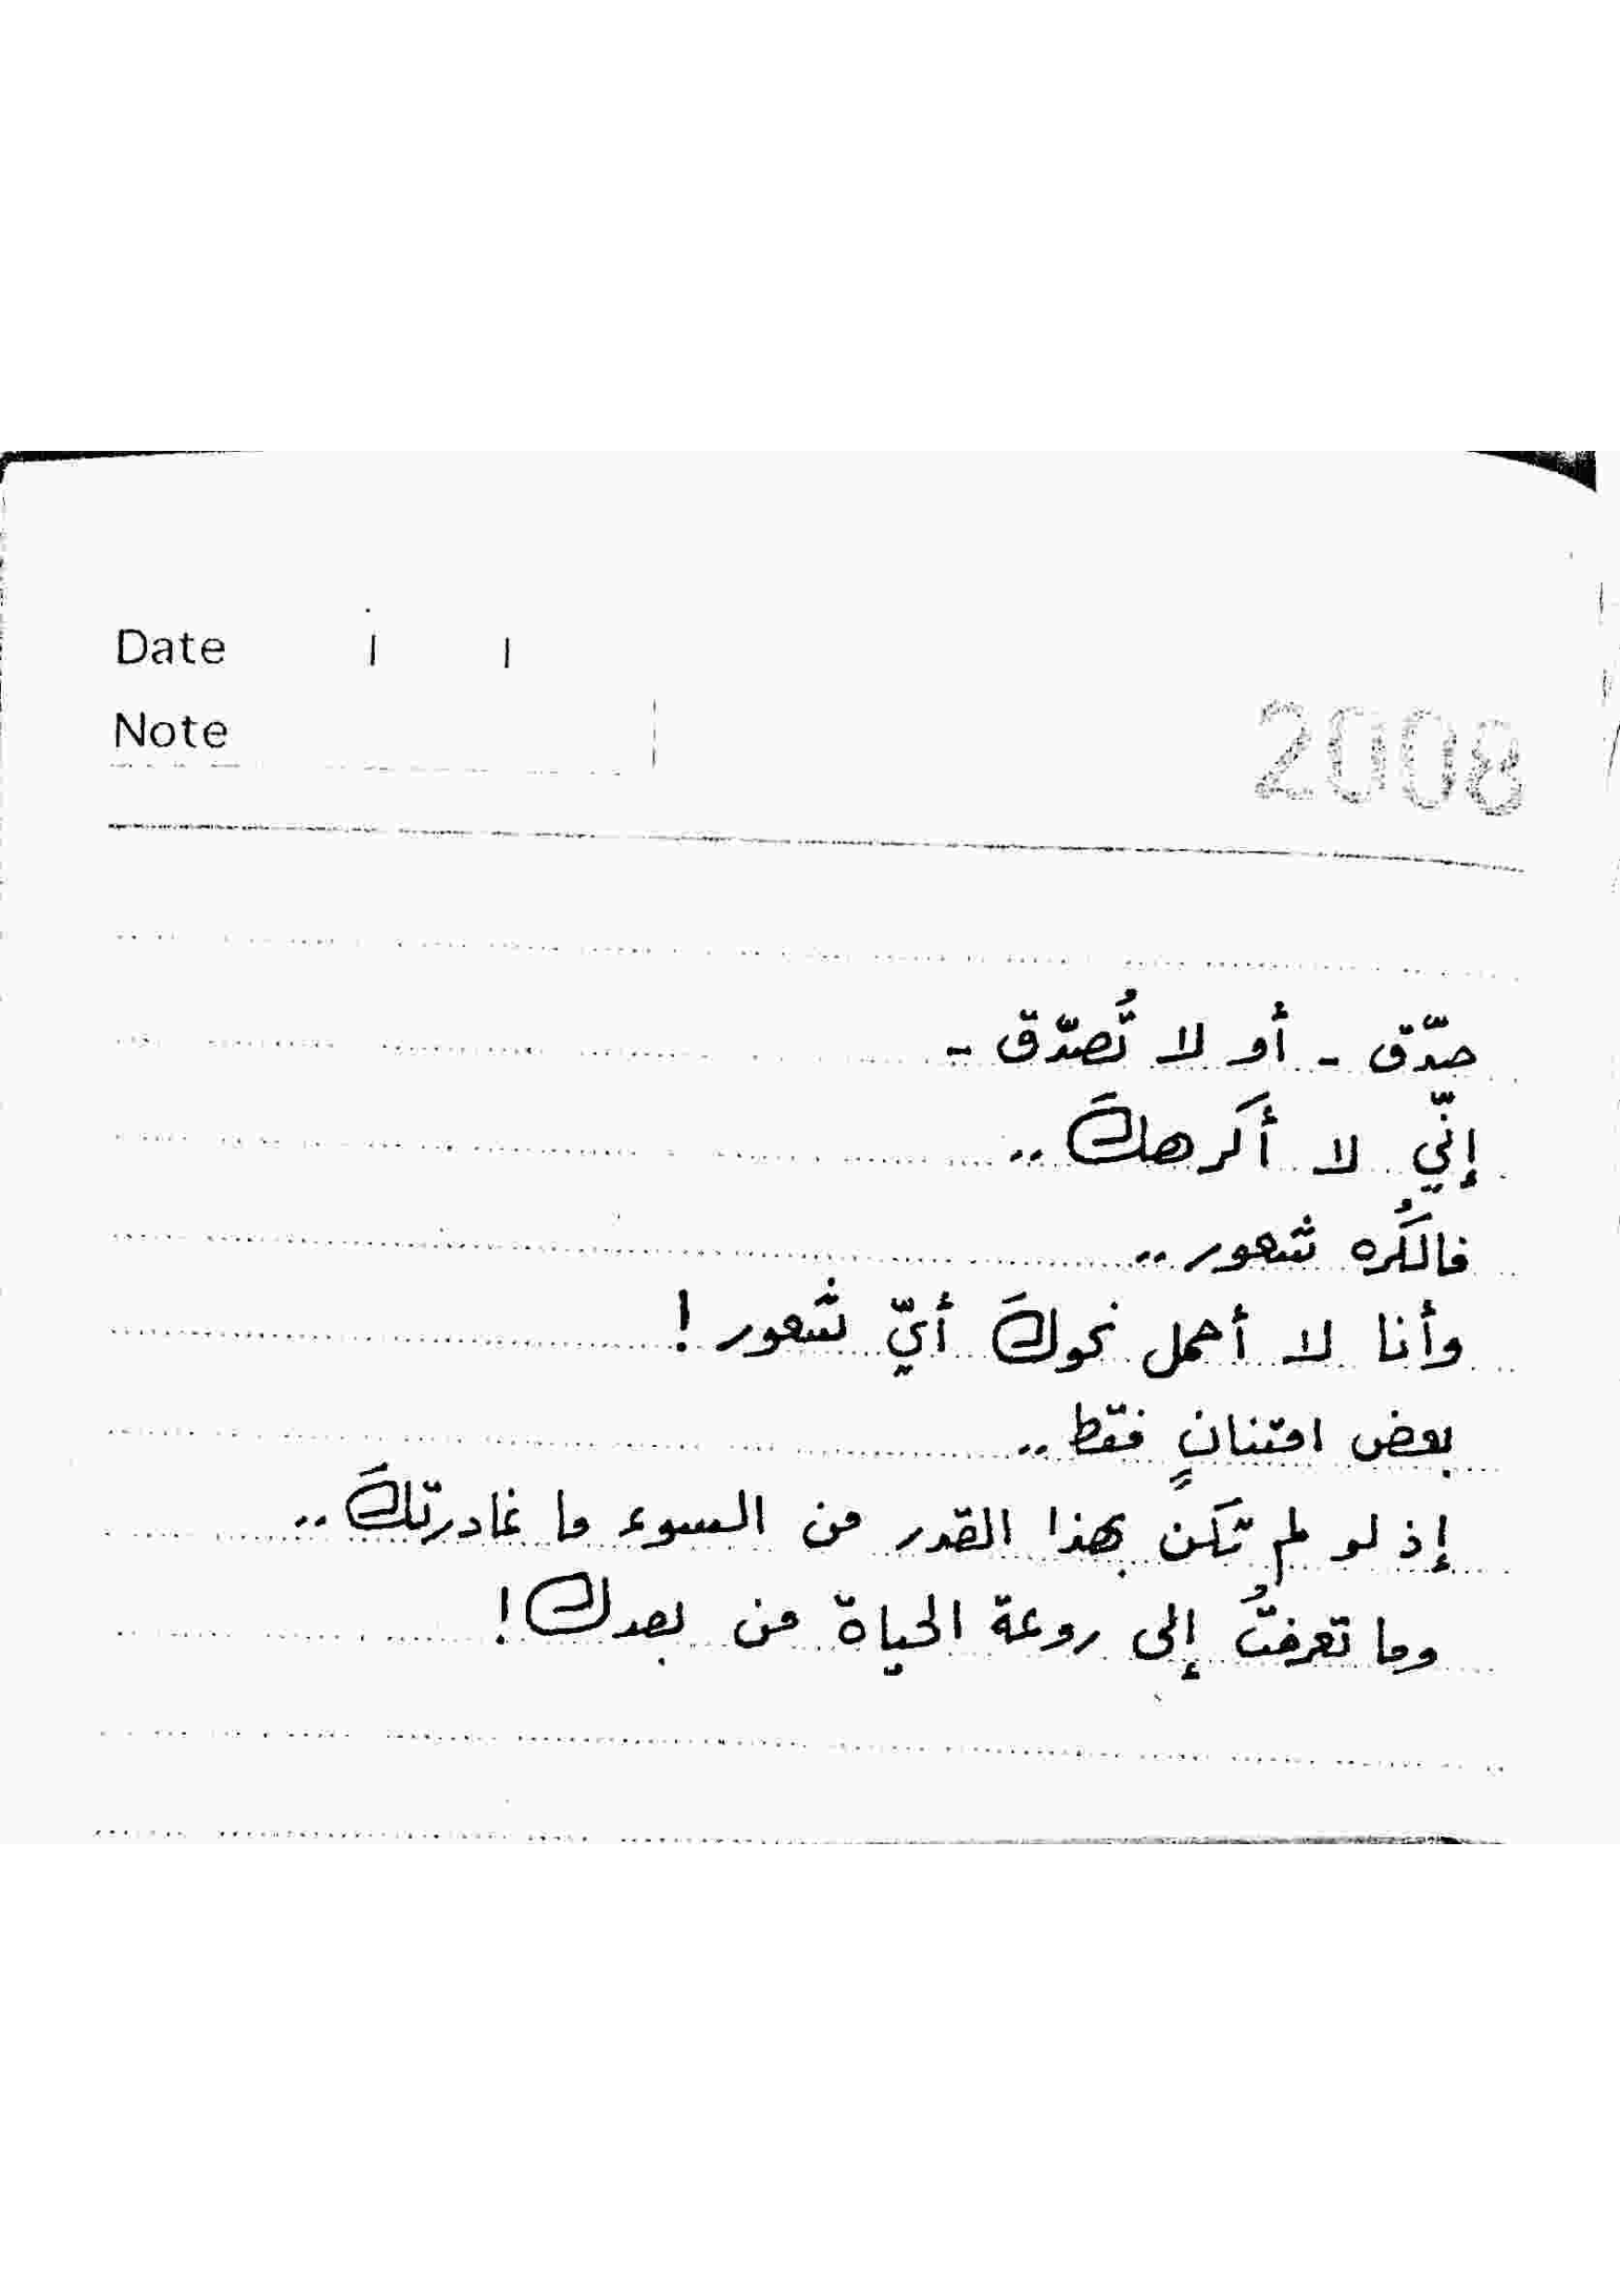 Date / /
Note
2008
صدّق - أو لا تُصدّق -
إنّي لا أكرهكَ ..
فالكُره شعور ..
وأنا لا أحمل نحوكَ أيّ شعور !
بعض امتنانٍ فقط ..
إذ لو لم تكن بهذا القدر من السوء ما غادرتكَ ..
وما تعرفتُ إلى روعة الحياة من بعدك !